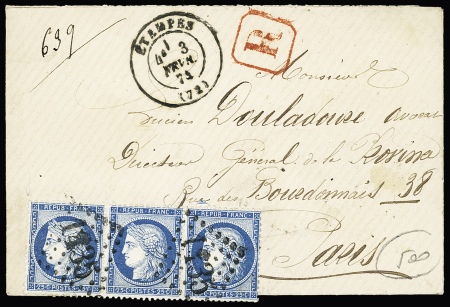 639
ETAMPES
3
FEVR.
74
(72)
R
Monsieur
Lucien Douladoure avocat
Directeur Général de la Rovina
Rue des Bourdonnais 38
Paris
500
REPUB. FRANC. REPUB. FRANC. REPUB. FRANC.
25 C. POSTES 25 C. 25 C. POSTES 25 C. 25 C. POSTES 25 C.